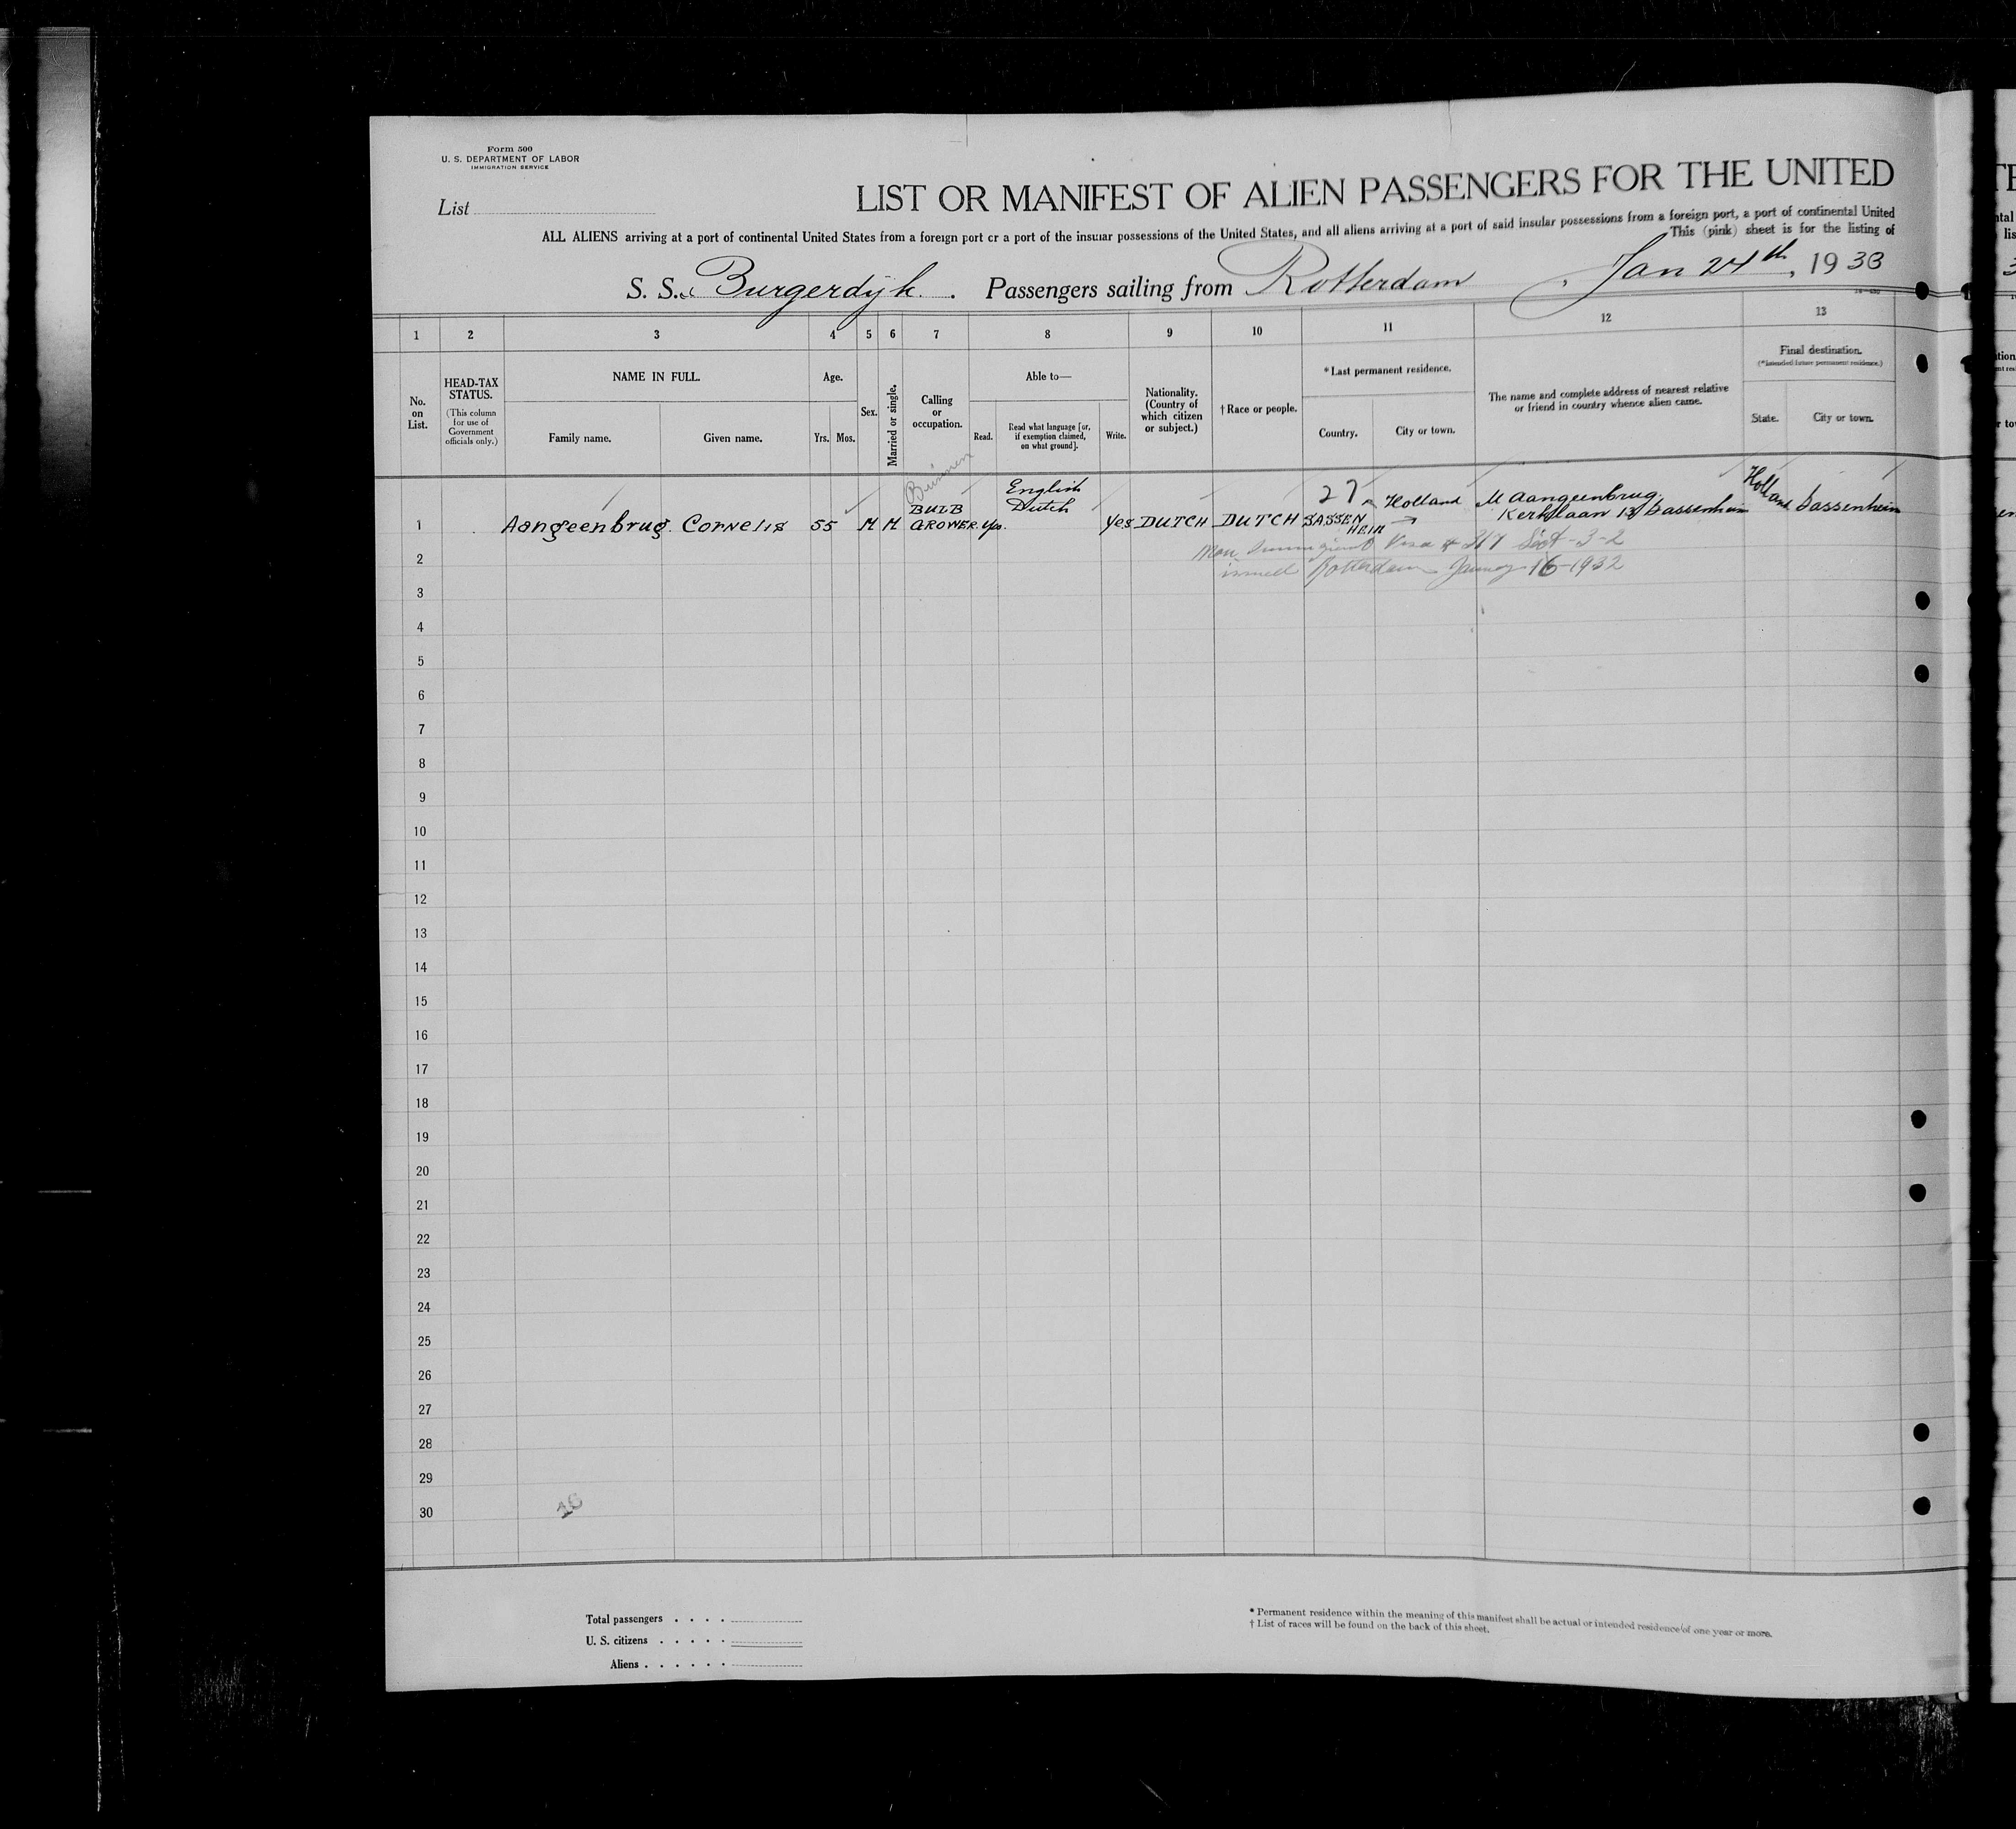 Form 500
U. S. DEPARTMENT OF LABOR
IMMIGRATION SERVICE
List
LIST OR MANIFEST OF ALIEN PASSENGERS FOR THE UNITED
ALL ALIENS arriving at a port of continental United States from a foreign port or a port of the insular possessions of the United States, and all aliens arriving at a port of said insular possessions from a foreign port, a port of continental United
This (pink) sheet is for the listing of
S. S. Burgerdyk. Passengers sailing from Rotterdam, Jan 24th, 1933
1 2 3 4 5 6 7 8 9 10 11 12 13
No. on List.
HEAD-TAX STATUS.
(This column for use of Government officials only.)
NAME IN FULL.
Family name. Given name.
Age.
Yrs. Mos.
Sex.
Married or single.
Calling or occupation.
Able to—
Read. Read what language [or, if exemption claimed, on what ground]. Write.
Nationality. (Country of which citizen or subject.)
†Race or people.
*Last permanent residence.
Country. City or town.
The name and complete address of nearest relative or friend in country whence alien came.
Final destination.
(*Intended future permanent residence.)
State. City or town.
1 Aangeenbrug. Cornelis 55 M M BULB GROWER. yes. English Dutch Yes DUTCH DUTCH SASSENHEIM Holland M Aangeenbrug. Kerklaan 13 Sassenheim Holland Sassenheim
27
Non Immigrant Visa # 317 Sect-3-2
issued Rotterdam January 16-1932
2
3
4
5
6
7
8
9
10
11
12
13
14
15
16
17
18
19
20
21
22
23
24
25
26
27
28
29
30
16
Total passengers
U. S. citizens
Aliens
* Permanent residence within the meaning of this manifest shall be actual or intended residence of one year or more.
† List of races will be found on the back of this sheet.